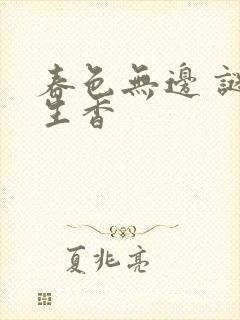 春色無邊 謎
生香
夏兆亮